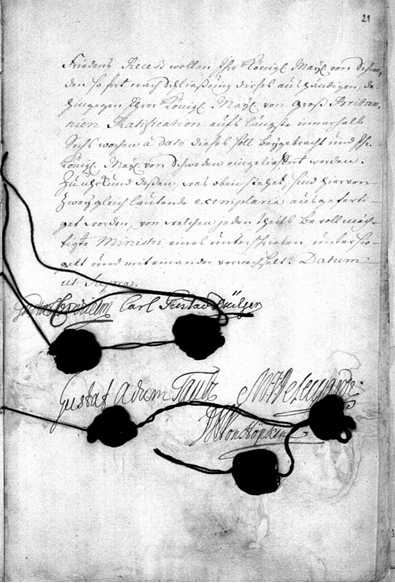 21
Friedens Recess wollen Ihr Königl. Mayt. von Schwe
den sofort nach Schließung dieses aushändigen, da
hingegen Ihrer Königl. Mayt. von Groß Britan
nien Ratification aufs längste innerhalb
Sechs wochen à dato dieses soll beygebracht und Ihr
Königl. Mayt. von Schweden eingeliefert werden.
Zu Uhrkund dessen, was oben stehet, sind hiervon
Zwey gleich lautende exemplaria ausgeferti
get worden, von welchen jeden theils Bevollmäch
tigte Ministri eines unterschrieben, untersie
gelt und mit einander verwechselt. Datum
ut supra.
Carl Gustav Dücker
Gustaf Adam Taube
M. D. la Gardie
Von Höpken